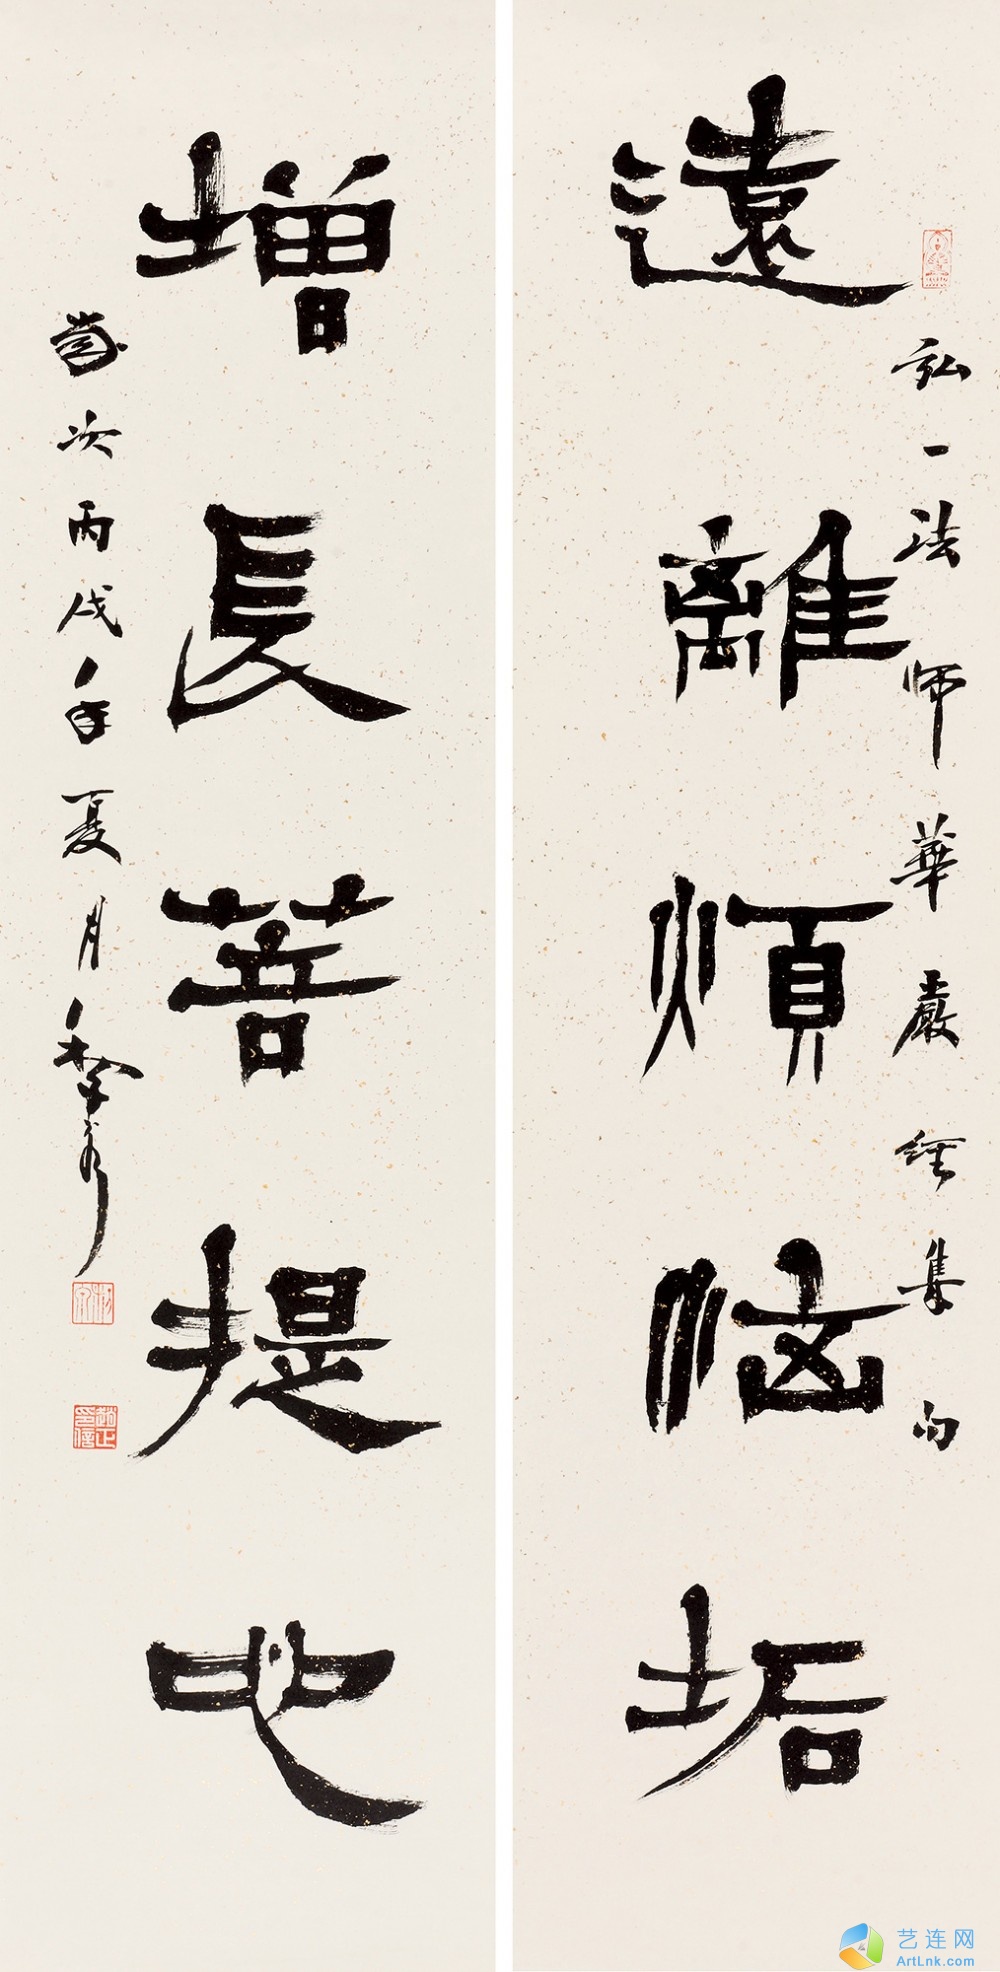 遠離煩惱垢
弘一法師華嚴經集句
增長菩提心
歲次丙戌年夏月黎泉
黎泉
趙正印信
艺连网
ArtLnk.com